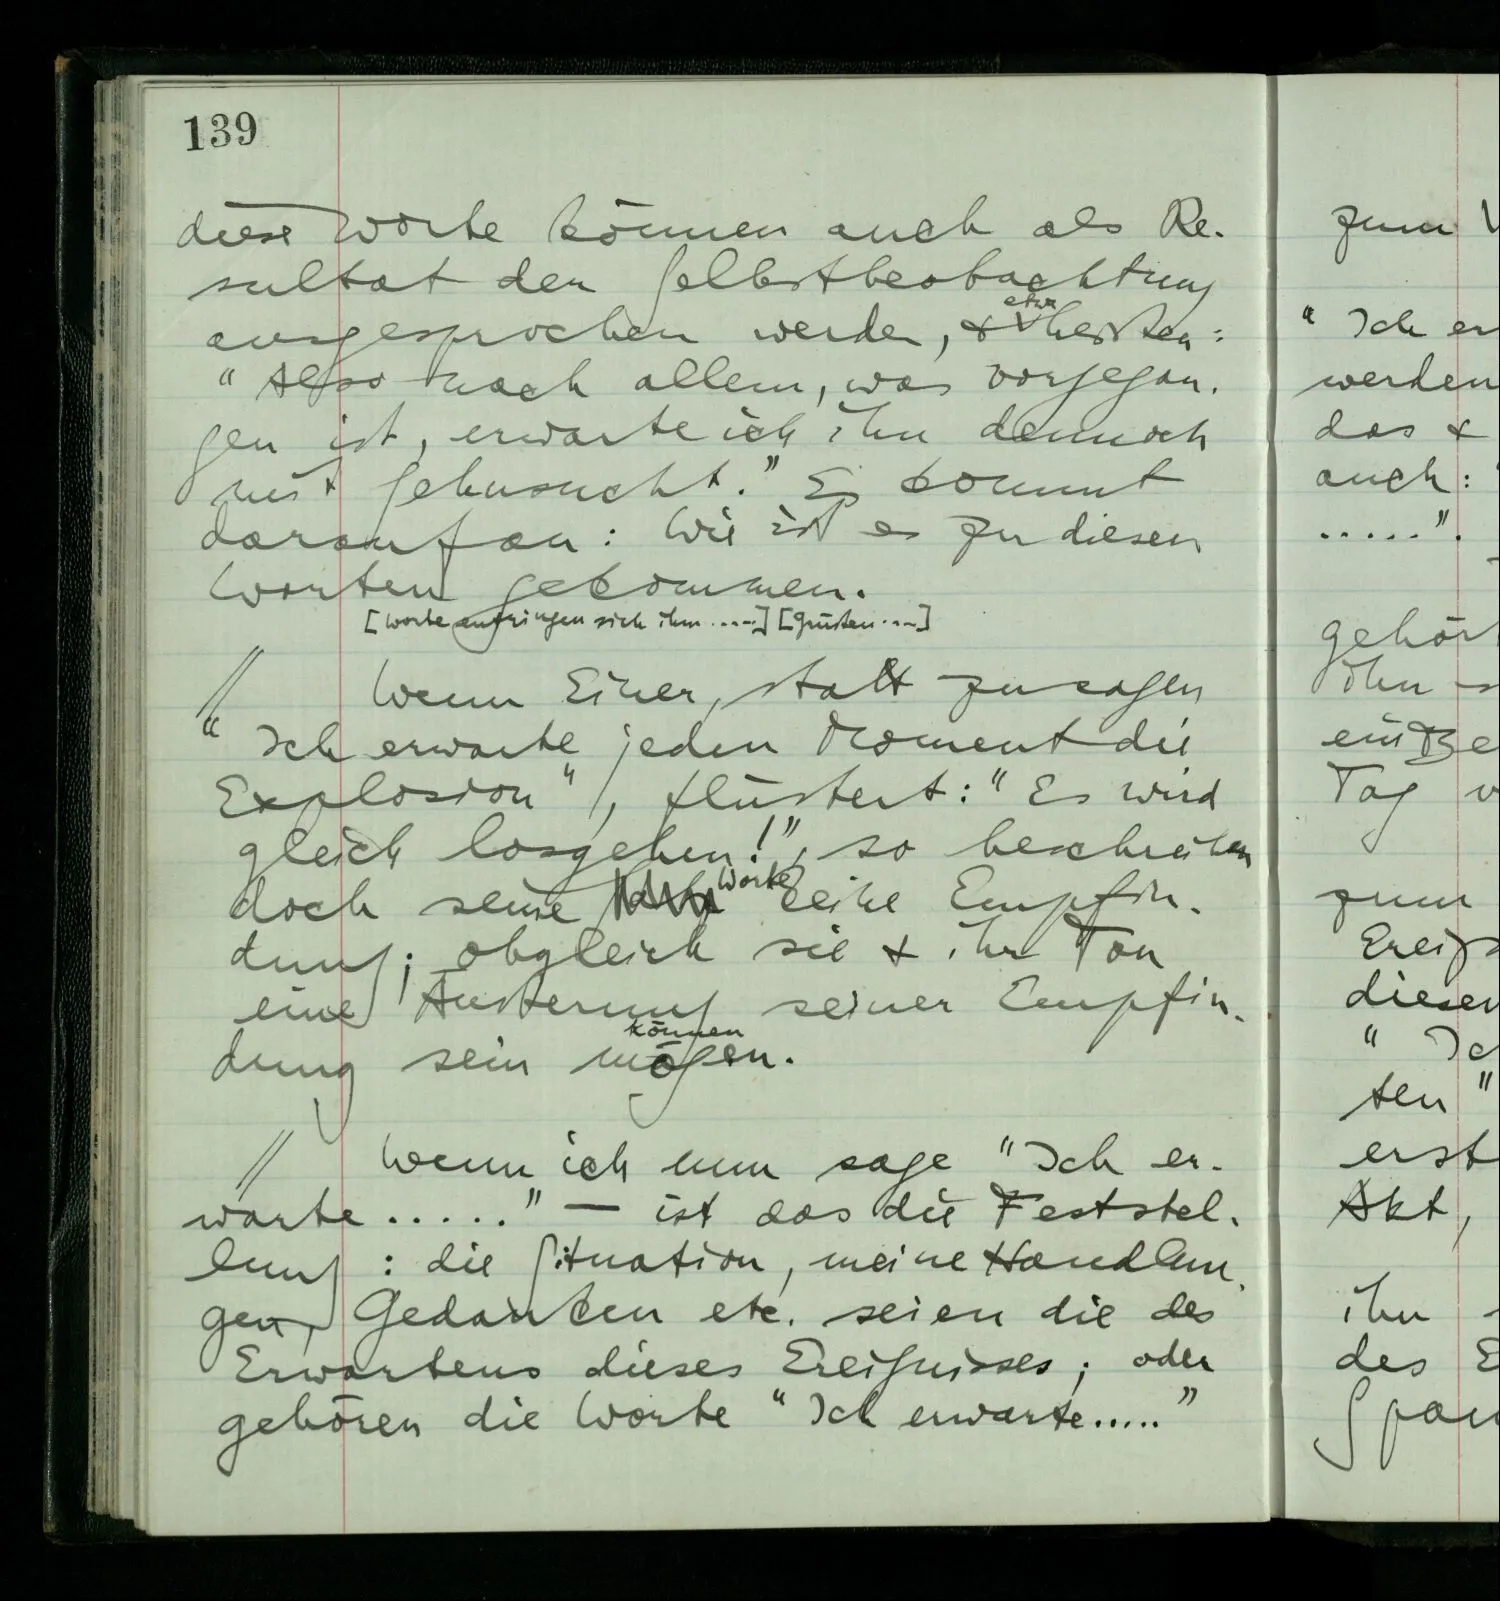 139
diese Worte können auch als Re-
sultat der Selbstbeobachtung
ausgesprochen werden, & etwa heißen:
"Also nach allem, was vorgegan-
gen ist, erwarte ich ihn dennoch
mit Sehnsucht." Es kommt
darauf an: Wie ist es zu diesen
Worten gekommen.
[Worte entringen sich ihm ....] [Grüßen ....]
// Wenn Einer, statt zu sagen
"Ich erwarte jeden Moment die
Explosion", flüstert: "Es wird
gleich losgehen!", so beschreiben
doch seine Worte keine Empfin-
dung; obgleich sie & ihr Ton
eine Äußerung seiner Empfin-
können
dung sein mögen.
// Wenn ich nun sage "Ich er-
warte ....." — ist das die Feststel-
lung: die Situation, meine Handlun-
gen, Gedanken etc. seien die des
Erwartens dieses Ereignisses; oder
gehören die Worte "Ich erwarte ....."
zum
"Ich er
werden
das &
auch:
.....".
gehör
ihn
ein Be
Tag
zum
Ereig
diesen
"Ic
ten"
erst
Akt,
ihn
des E
Span